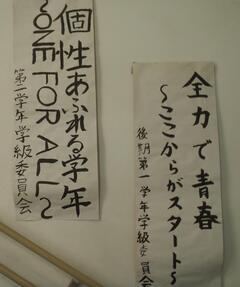 全力で青春
～ここからがスタート～
後期第一学年学級委員会
個性あふれる学年
～ONE FOR ALL～
第二学年学級委員会